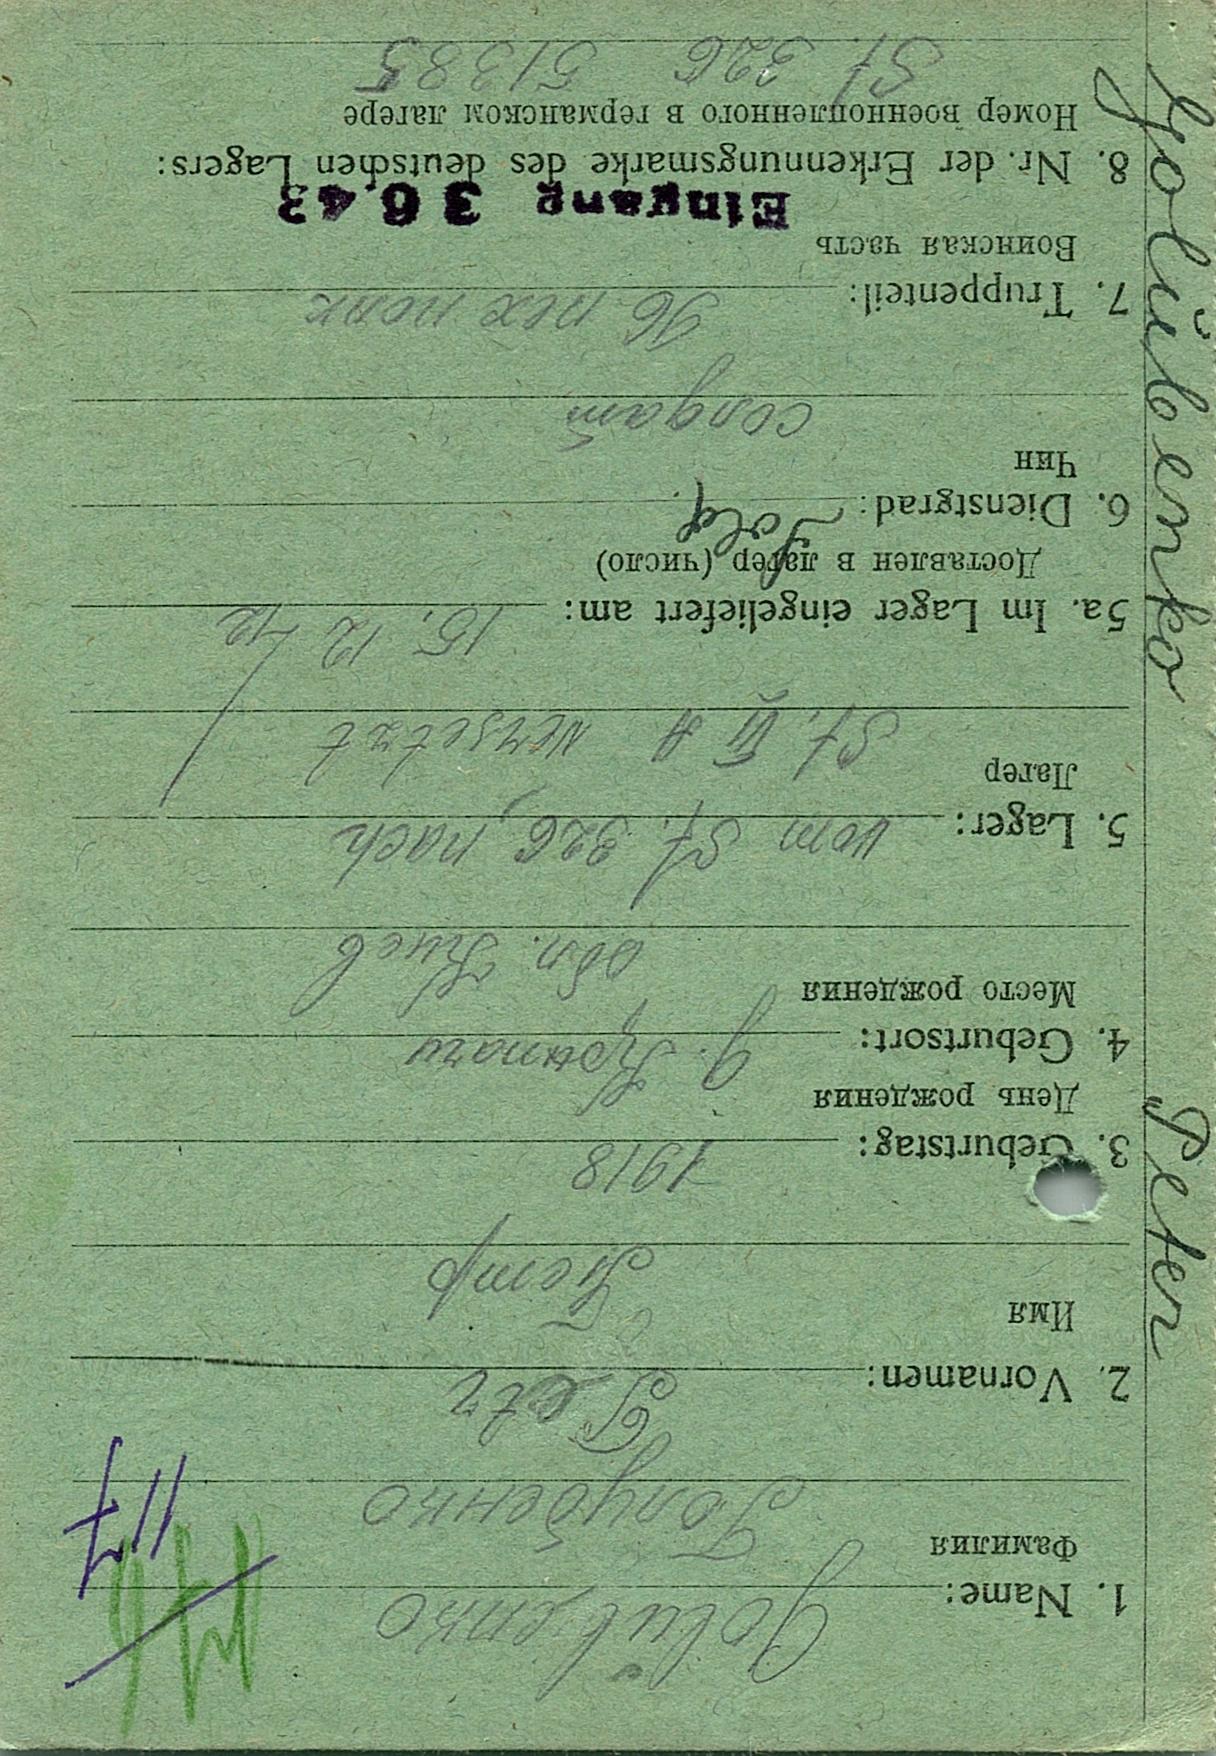 Golübenko Peter
117
1. Name: Golübenko
Фамилия Голубенко
2. Vornamen: Petr
Имя Петр
3. Geburtstag: 1918
День рождения
4. Geburtsort: д.
Место рождения обл. Киев
5. Lager: vom St. 326, nach
Лагер St. VI A versetzt
5a. Im Lager eingeliefert am: 15. 12 42
Доставлен в лагер (число)
6. Dienstgrad: Sold.
Чин солдат
7. Truppenteil: 96 пех полк
Воинская часть
Eingang 3 6.43
8. Nr. der Erkennungsmarke des deutschen Lagers:
Номер военнопленного в германском лагере
St. 326 51385